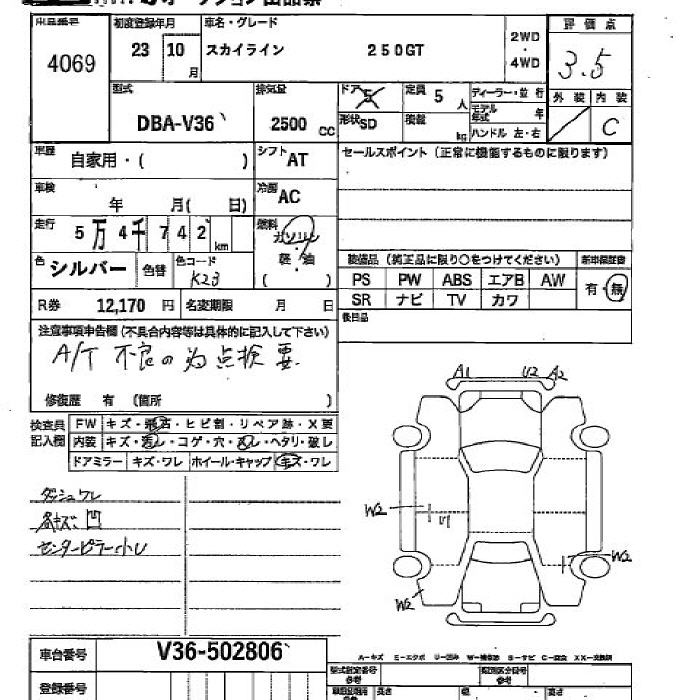 オークション出品票
出品番号 4069
初度登録年月 23 10月
車名・グレード スカイライン 250GT
2WD・4WD
評価点 3.5
外装 内装 C
型式 DBA-V36
排気量 2500 cc
ドア 5
形状 SD
定員 5 人
積載 kg
ディーラー・並行
モデル年式 年
ハンドル 左・右
車歴 自家用・( )
シフト AT
セールスポイント (正常に機能するものに限ります)
車検 年 月( 日)
冷房 AC
走行 5万4千742km
燃料 ガソリン・軽油 ( )
色 シルバー 色替
色コード K23
装備品 (純正品に限り○をつけてください) 新車保証書
PS PW ABS エアB AW 有・無
SR ナビ TV カワ
R券 12,170 円 名変期限 月 日
後日品
注意事項申告欄(不具合内容等は具体的に記入して下さい)
A/T 不良の為点検要
修復歴 有 (箇所 )
検査員記入欄
FW キズ・飛石・ヒビ割・リペア跡・X要
内装 キズ・汚レ・コゲ・穴・スレ・ヘタリ・破レ
ドアミラー キズ・ワレ ホイール・キャップ キズ・ワレ
ダッシュワレ
各キズ、凹
センターピラー小U
A1 U2 A2
W2 U1
W2
W2
車台番号 V36-502806
A-キズ E-エクボ U-凹み W-補修跡 S-サビ C-腐食 XX-交換済
登録番号
型式指定番号 参考
類別区分番号 参考
長さ 幅 高さ